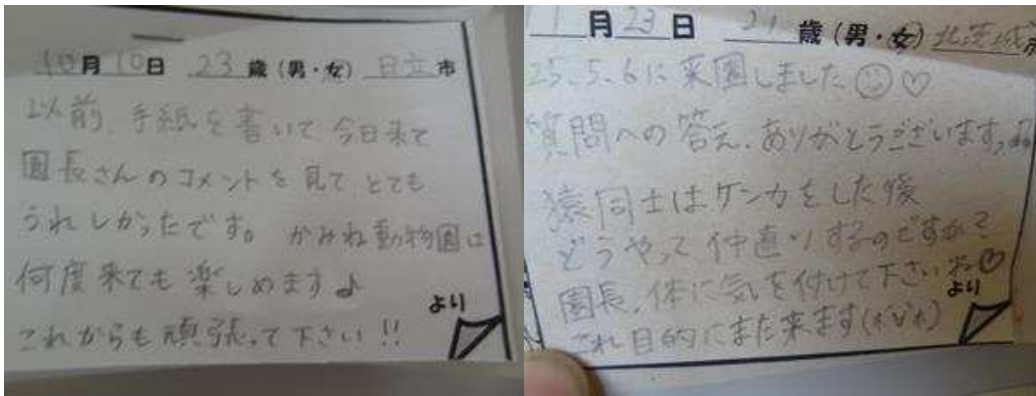 10月10日 23歳(男・女) 日立市
以前、手紙を書いて今日来て
園長さんのコメントを見て、とても
うれしかったです。かみね動物園は
何度来ても楽しめます♪
これからも頑張って下さい!!
より
11月23日 21歳(男・女) 北茨城市
25.5.6に来園しました☺♡
質問への答え、ありがとうございます♪
猿同士はケンカをした後
どうやって仲直りするのですか?
園長、体に気を付けて下さいね♡
これ目的にまた来ます(*^v^*)
より